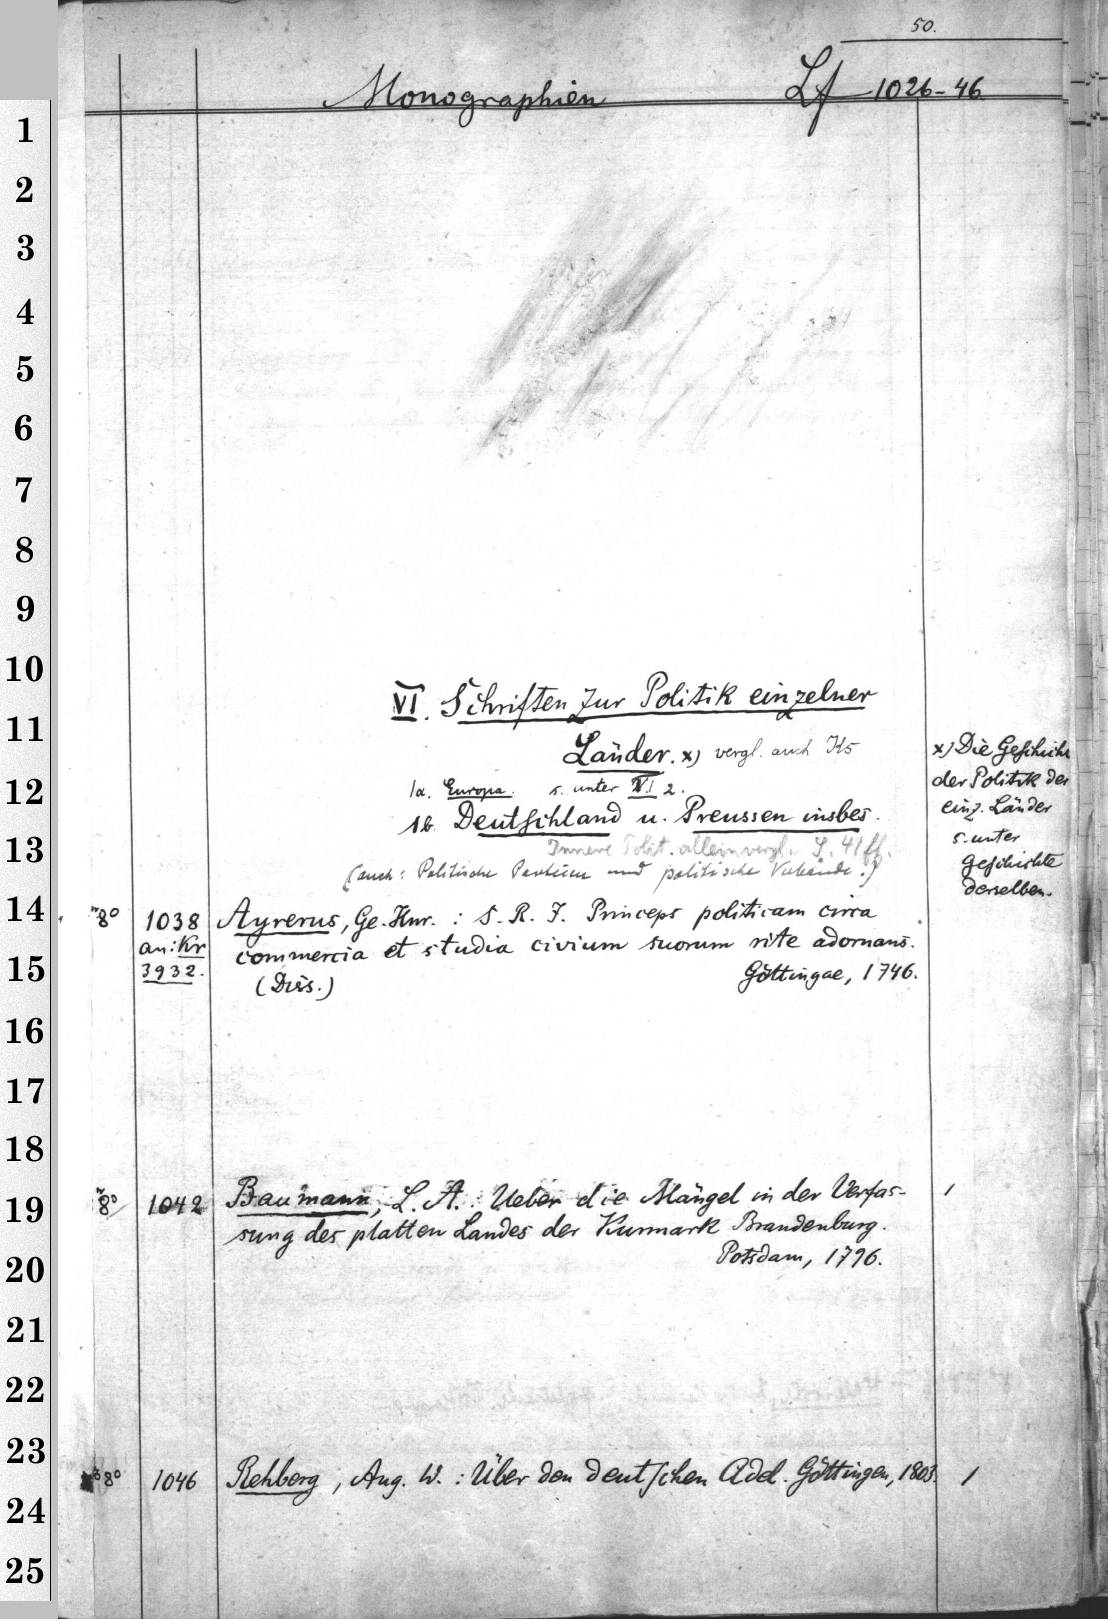 50.
Monographien Lf 1026-46
1
2
3
4
5
6
7
8
9
10
VI. Schriften zur Politik einzelner
11
Länder. x) vergl. auch
x) Die Geschicht
der Politik der
einz. Länder
s. unter
Geschichte
derselben.
12
1a. Europa. s. unter VI 2.
1b. Deutschland u. Preussen insbes.
13
Innere Polit. allein vergl. S. 41 ff.
(auch: Politische Parteien und politische Verbände.)
14
8° 1038 Ayrerus, Ge. Hnr. : S. R. J. Princeps politicam circa
an: Kr commercia et studia civium suorum rite adornans.
15
3932. (Diss.) Göttingae, 1746.
16
17
18
19
8° 1042 Baumann, L. A. : Ueber die Mängel in der Verfas-
sung des platten Landes der Kurmark Brandenburg.
20
Potsdam, 1796.
21
22
23
8° 1046 Rehberg, Aug. W. : Über den deutschen Adel. Göttingen, 1803.
24
25